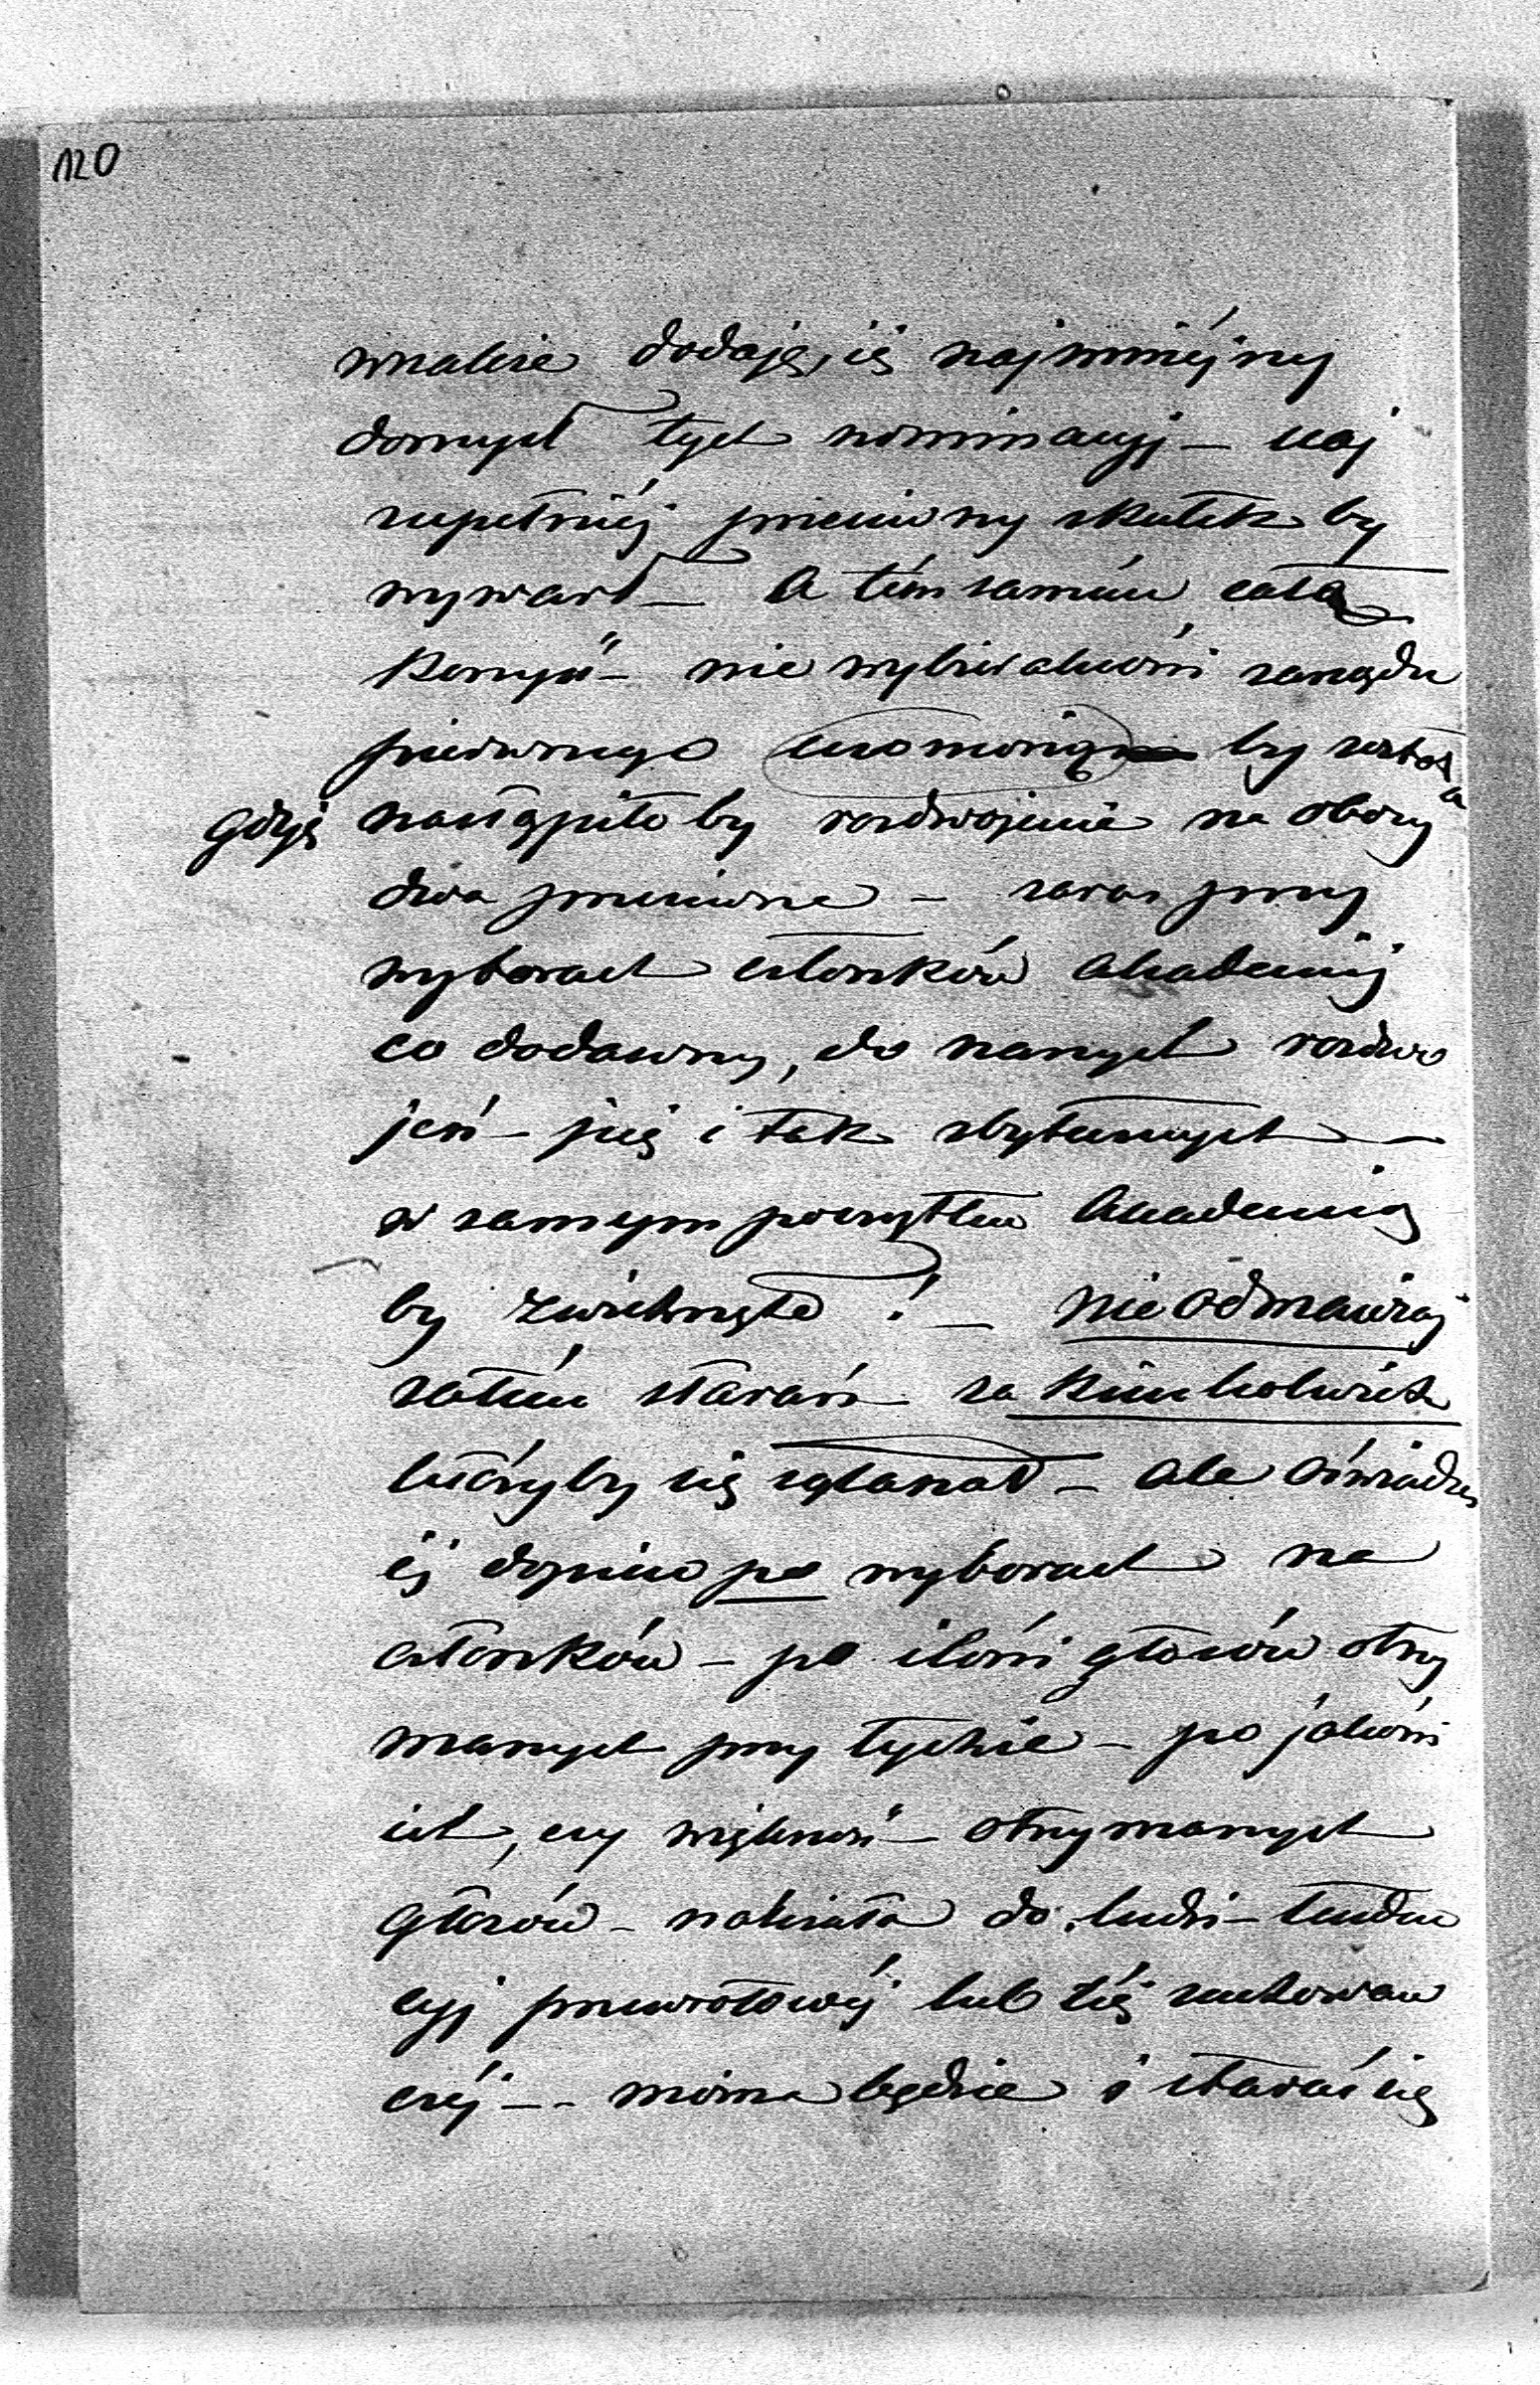 120
wszakże dodaję, iż najmniéjszy
domysł tych nominacyj – naj
zupełniéj przeciwny skutek by
wywarł – A tém samém cała
Korzyść – nie wybieralności zarządu
pierwszego by została
gdyż nastąpiłoby rozdwojenie na obozy
dwa przeciwne – zaraz przy
wyborach członków Akademij
co dodawszy, do naszych rozdwo
jeń – już i tak zbytecznych –
w samym początku Akademią
by zwichnęło! – Nie odmawiaj
zatém starań za Kimkolwiek
któryby się zgłaszał – ale oświadcz
iż dopiero po wyborach na
członków – po ilości głosów otrzy
manych przy tychże – po jakości
ich, czy większość – otrzymanych
głosów – należała do ludzi – tenden
cyj przewrotowéj lub téż zachowaw
czéj – – można będzie i starać się